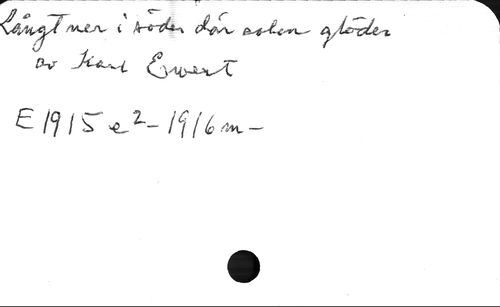 Långt ner i söder där solen glöder
av Karl Ewert
E 1915 e2 - 1916 m -